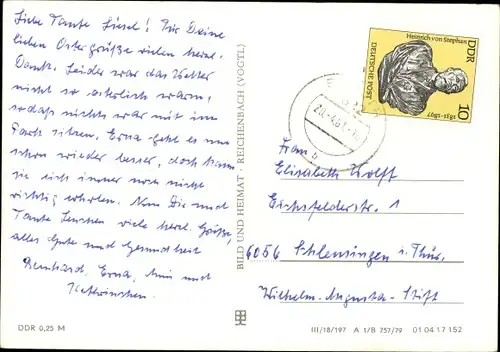 Liebe Tante Liesel! Für Deine
lieben Ostergrüße vielen herzl.
Dank. Leider war das Wetter
nicht so österlich warm,
sodaß nichts war mit im
Park sitzen. Erna geht es nun
schon wieder besser, doch kann
sie sich immer noch nicht
richtig erholen. Nun Dir und
Tante Lenchen viele herzl. Grüße,
alles Gute und Gesundheit
Bernhard, Erna, und
DDR 0,25 M
BILD UND HEIMAT · REICHENBACH (VOGTL)
Heinrich von Stephan
DDR
DEUTSCHE POST
10
1831-1897
Frau
Elisabeth Wolff
Eichsfelderstr. 1
6056 Schleusingen i. Thür.
Wilhelm-Augusta-Stift
III/18/197 A 1/B 757/79 01 04 17 152